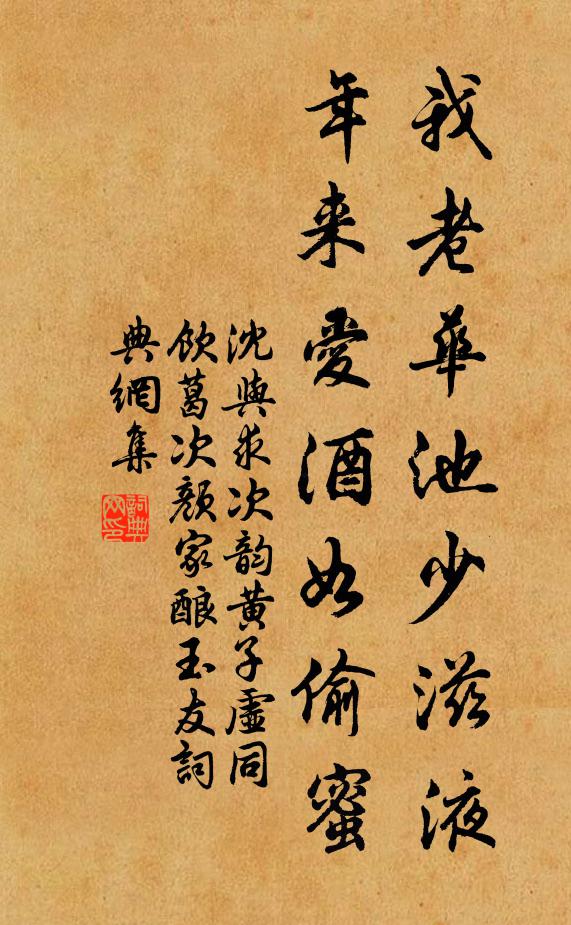 我老華池少滋液
年来愛酒如偷蜜
沈與求次韵黄子虛同
飲葛次顏家酿玉友詞
典網集
詞典網印